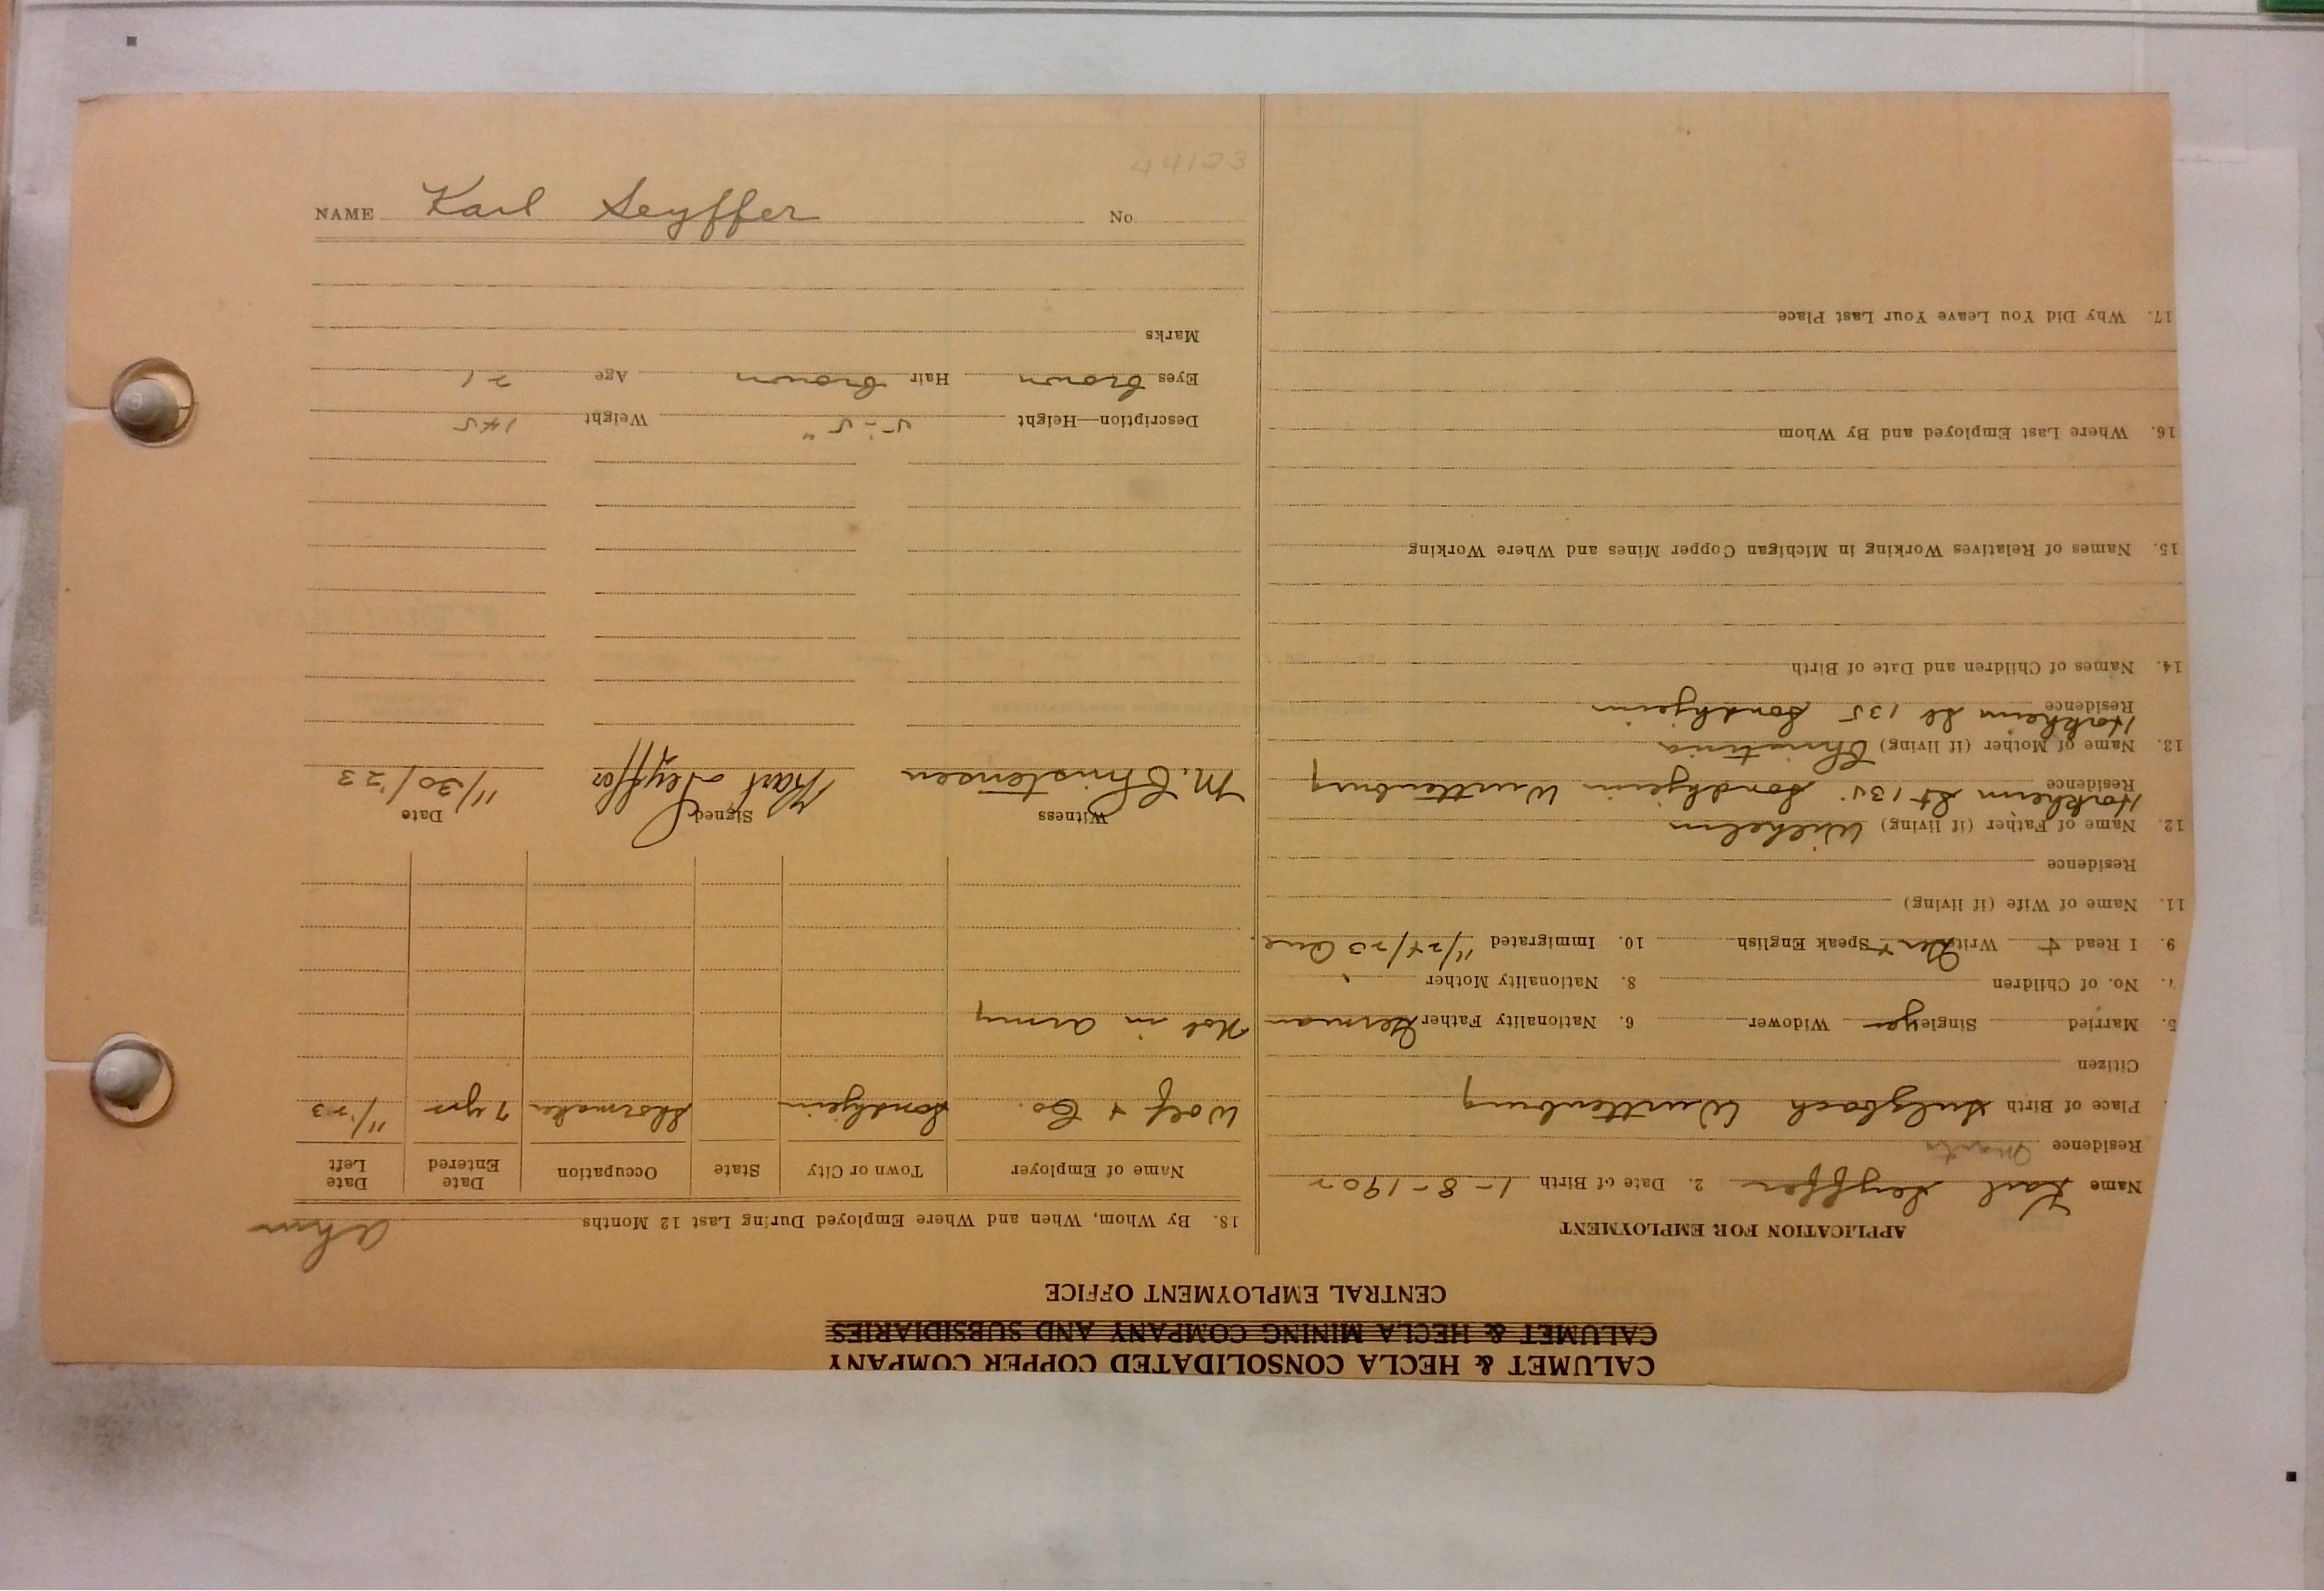 CALUMET & HECLA CONSOLIDATED COPPER COMPANY
CALUMET & HECLA MINING COMPANY AND SUBSIDIARIES
CENTRAL EMPLOYMENT OFFICE
APPLICATION FOR EMPLOYMENT
Name Karl Seyffer 2. Date of Birth 1-8-1902
Residence
Place of Birth Sulzbach Wurttenburg
Citizen
5. Married Single yes Widower 6. Nationality Father German
7. No. of Children 8. Nationality Mother "
9. I Read + Write Ger + Speak English 10. Immigrated 11/24/23
11. Name of Wife (if living)
Residence
12. Name of Father (if living) Wilhelm
Residence Horkheim St 135 Sondhjeim Wurttenburg
13. Name of Mother (if living) Christina
Residence Horkheim St 135 Sondhjeim
14. Names of Children and Date of Birth
15. Names of Relatives Working in Michigan Copper Mines and Where Working
16. Where Last Employed and By Whom
17. Why Did You Leave Your Last Place
18. By Whom, When and Where Employed During Last 12 Months
Name of Employer Town or City State Occupation Date Entered Date Left
Wolf & Co. Sondhjeim Shoemaker 7 yrs 11/23
Not in army
Witness Signed Date
M. Christensen Karl Seyffer 11/30/23
Description—Height 5'-5" Weight 145
Eyes brown Hair brown Age 21
Marks
NAME Karl Seyffer No.
44123